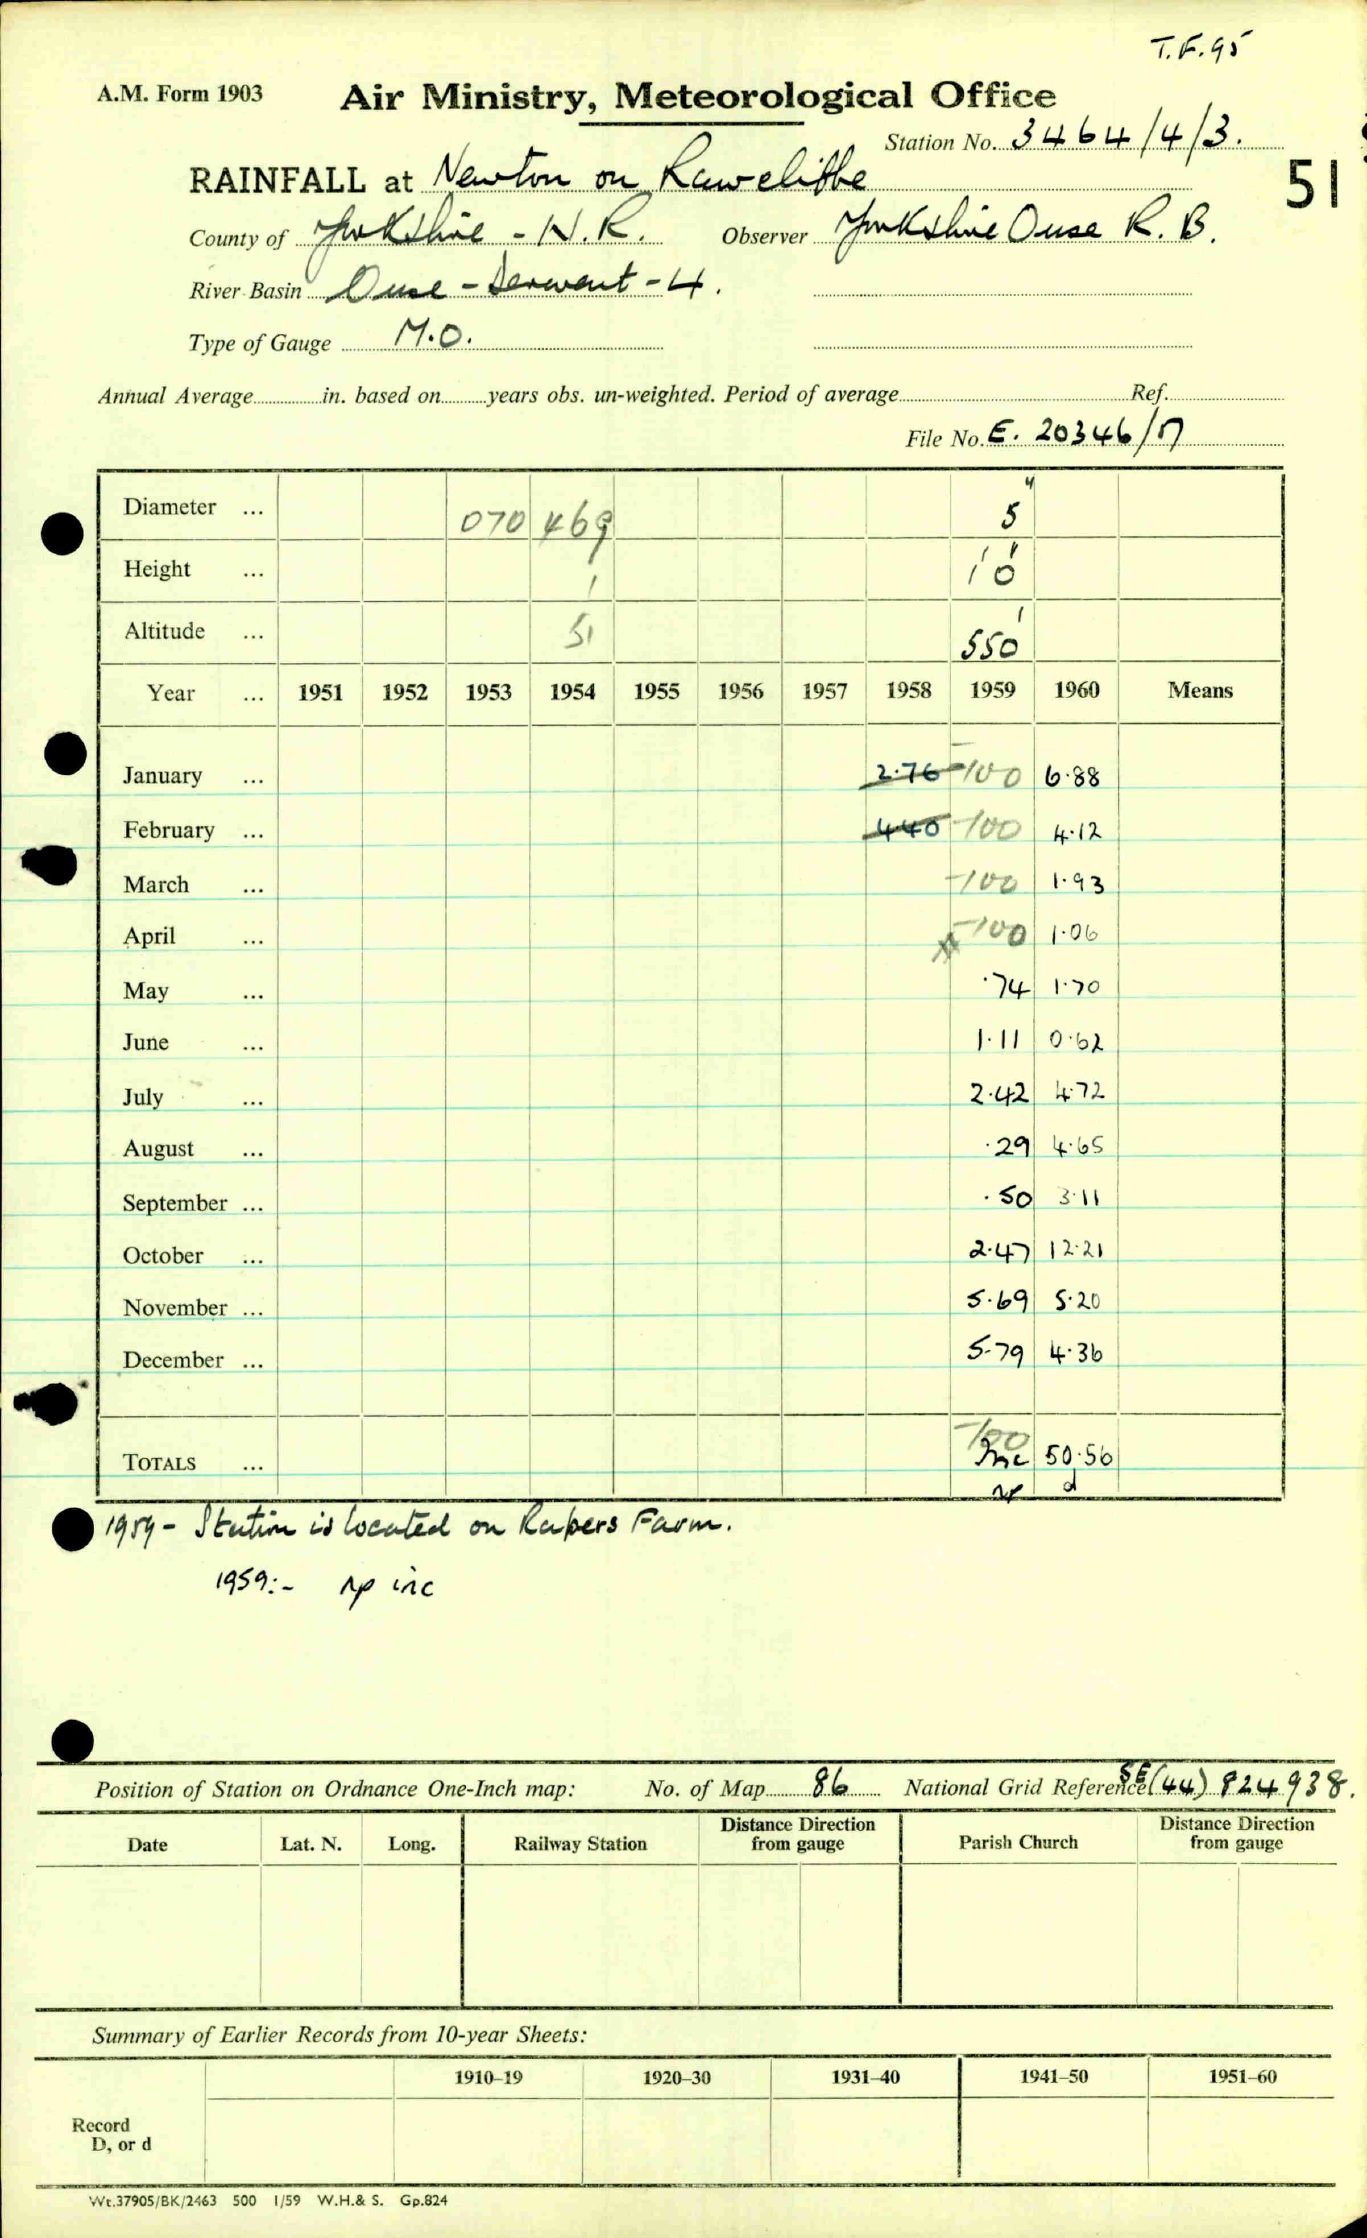 T.F.95
A.M. Form 1903 Air Ministry, Meteorological Office
Station No. 3464/4/3.
RAINFALL at Newton on Rawcliffe 51
County of Yorkshire - N.R. Observer Yorkshire Ouse R.B.
River Basin Ouse - Derwent - 4.
Type of Gauge M.O.
Annual Average in. based on years obs. un-weighted. Period of average Ref.
File No. E. 20346/57
Diameter ... 070 469 5"
Height ... 1 1' 0"
Altitude ... 51 550'
Year ... 1951 1952 1953 1954 1955 1956 1957 1958 1959 1960 Means
January ... 2.76 -100 6.88
February ... 4.40 -100 4.12
March ... -100 1.93
April ... -100 1.06
May ... .74 1.70
June ... 1.11 0.62
July ... 2.42 4.72
August ... .29 4.65
September ... .50 3.11
October ... 2.47 12.21
November ... 5.69 5.20
December ... 5.79 4.36
-100
TOTALS ... Inc 50.56
np d
1959 - Station is located on Rapers Farm.
1959:- np inc
Position of Station on Ordnance One-Inch map: No. of Map 86 National Grid Reference SE(44) 824938.
Date Lat. N. Long. Railway Station Distance Direction from gauge Parish Church Distance Direction from gauge
Summary of Earlier Records from 10-year Sheets:
1910–19 1920–30 1931–40 1941–50 1951–60
Record
D, or d
Wt.37905/BK/2463 500 1/59 W.H.& S. Gp.824